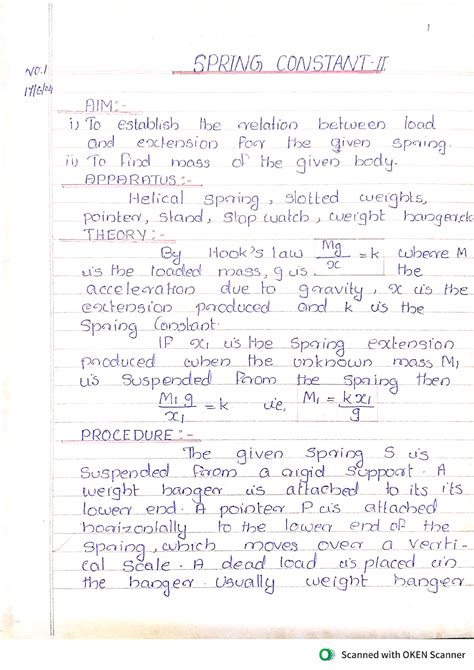 1
SPRING CONSTANT-II
NO.1
17/6/24
AIM:-
i) To establish the relation between load
and extension for the given spring.
ii) To find mass of the given body.
APPARATUS:-
Helical spring, slotted weights,
pointer, stand, stop watch, weight hanger etc
THEORY:-
By Hook's law Mg/x = k where M
is the loaded mass, g is the
acceleration due to gravity, x is the
extension produced and k is the
Spring Constant.
IF x₁ is the spring extension
produced when the unknown mass M₁
is suspended from the spring then
M₁g/x₁ = k i.e, M₁ = kx₁/g
PROCEDURE:-
The given spring S is
suspended from a rigid support. A
weight hanger is attached to its its
lower end. A pointer P is attached
horizontally to the lower end of the
spring, which moves over a verti-
cal scale. A dead load is placed in
the hanger. Usually weight hanger
Scanned with OKEN Scanner